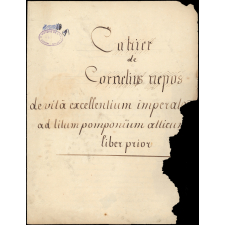 Cahier
de
Cornelius nepos
de vitâ excellentium imperat
ad titum pomponium atticum
liber prior